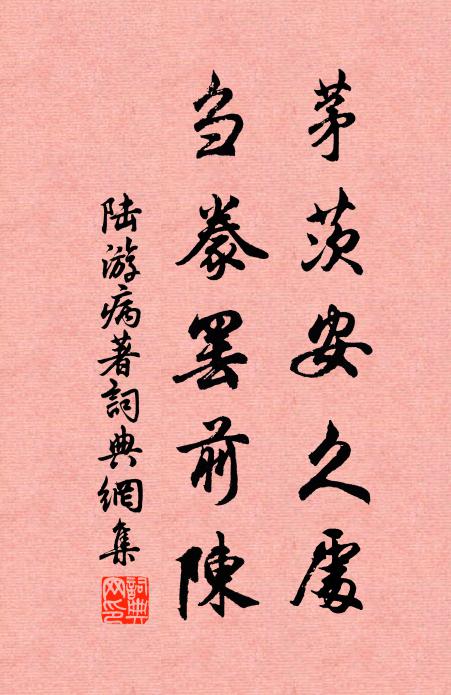 茅茨安久處
芻豢罢前陳
陆游病著詞典網集
詞典网印